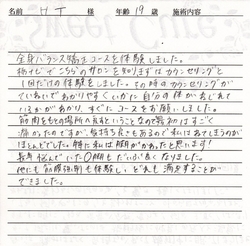 名前 H T 様 年齢 19 歳 施術内容
全身バランス矯正コースを体験しました。
初めてこちらのサロンを知りまずはカウンセリングと
1回だけの体験をしました。その時のカウンセリングが
ていねいでわかりやすくいかに自分の体がおじれて
いるかがわかり、すぐにコースをお願いしました。
筋肉をもとの場所へ戻すということなので最初はすごく
痛かったのですが、気持ち良さもあるので私はねてしまうのが
ほとんどでした。特に私は脚がかわったと思います!
長年悩んでいたO脚もだいぶ良くなりました。
他にも
も体験し、どれも満足することが
できました。